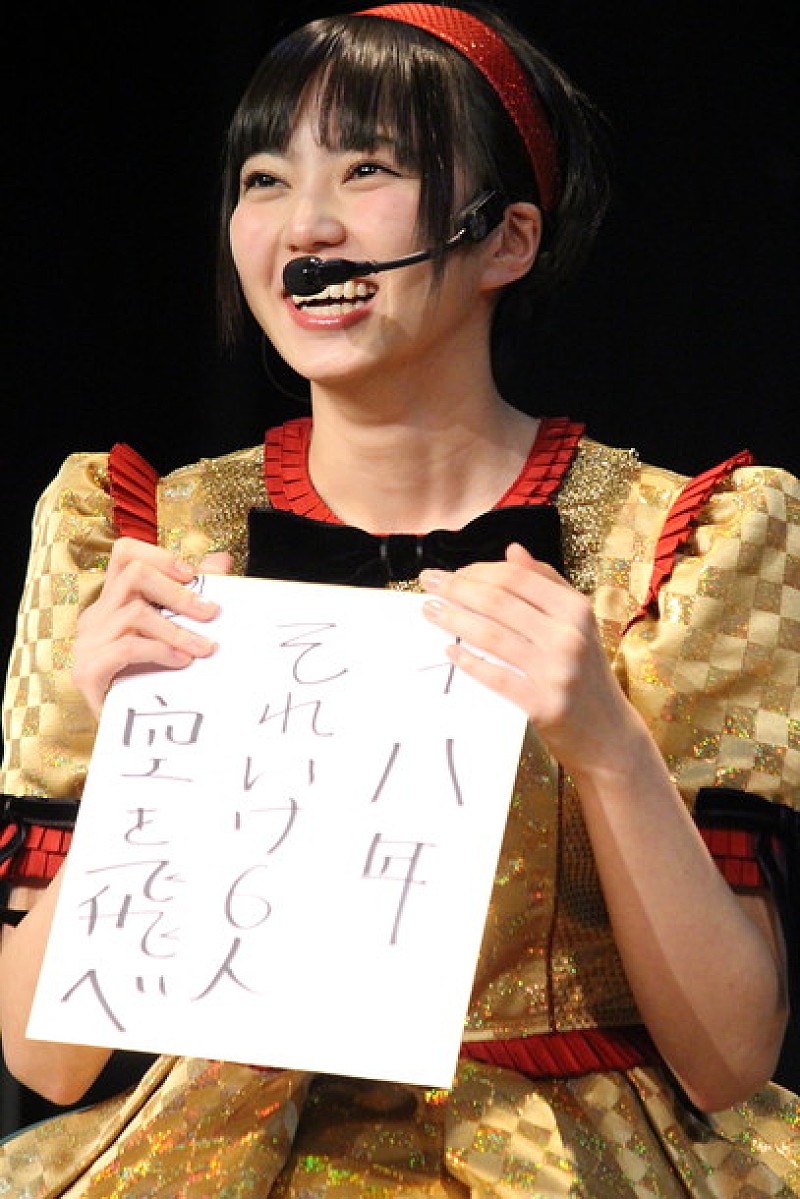 十八年
それいけ6人
空を飛べ